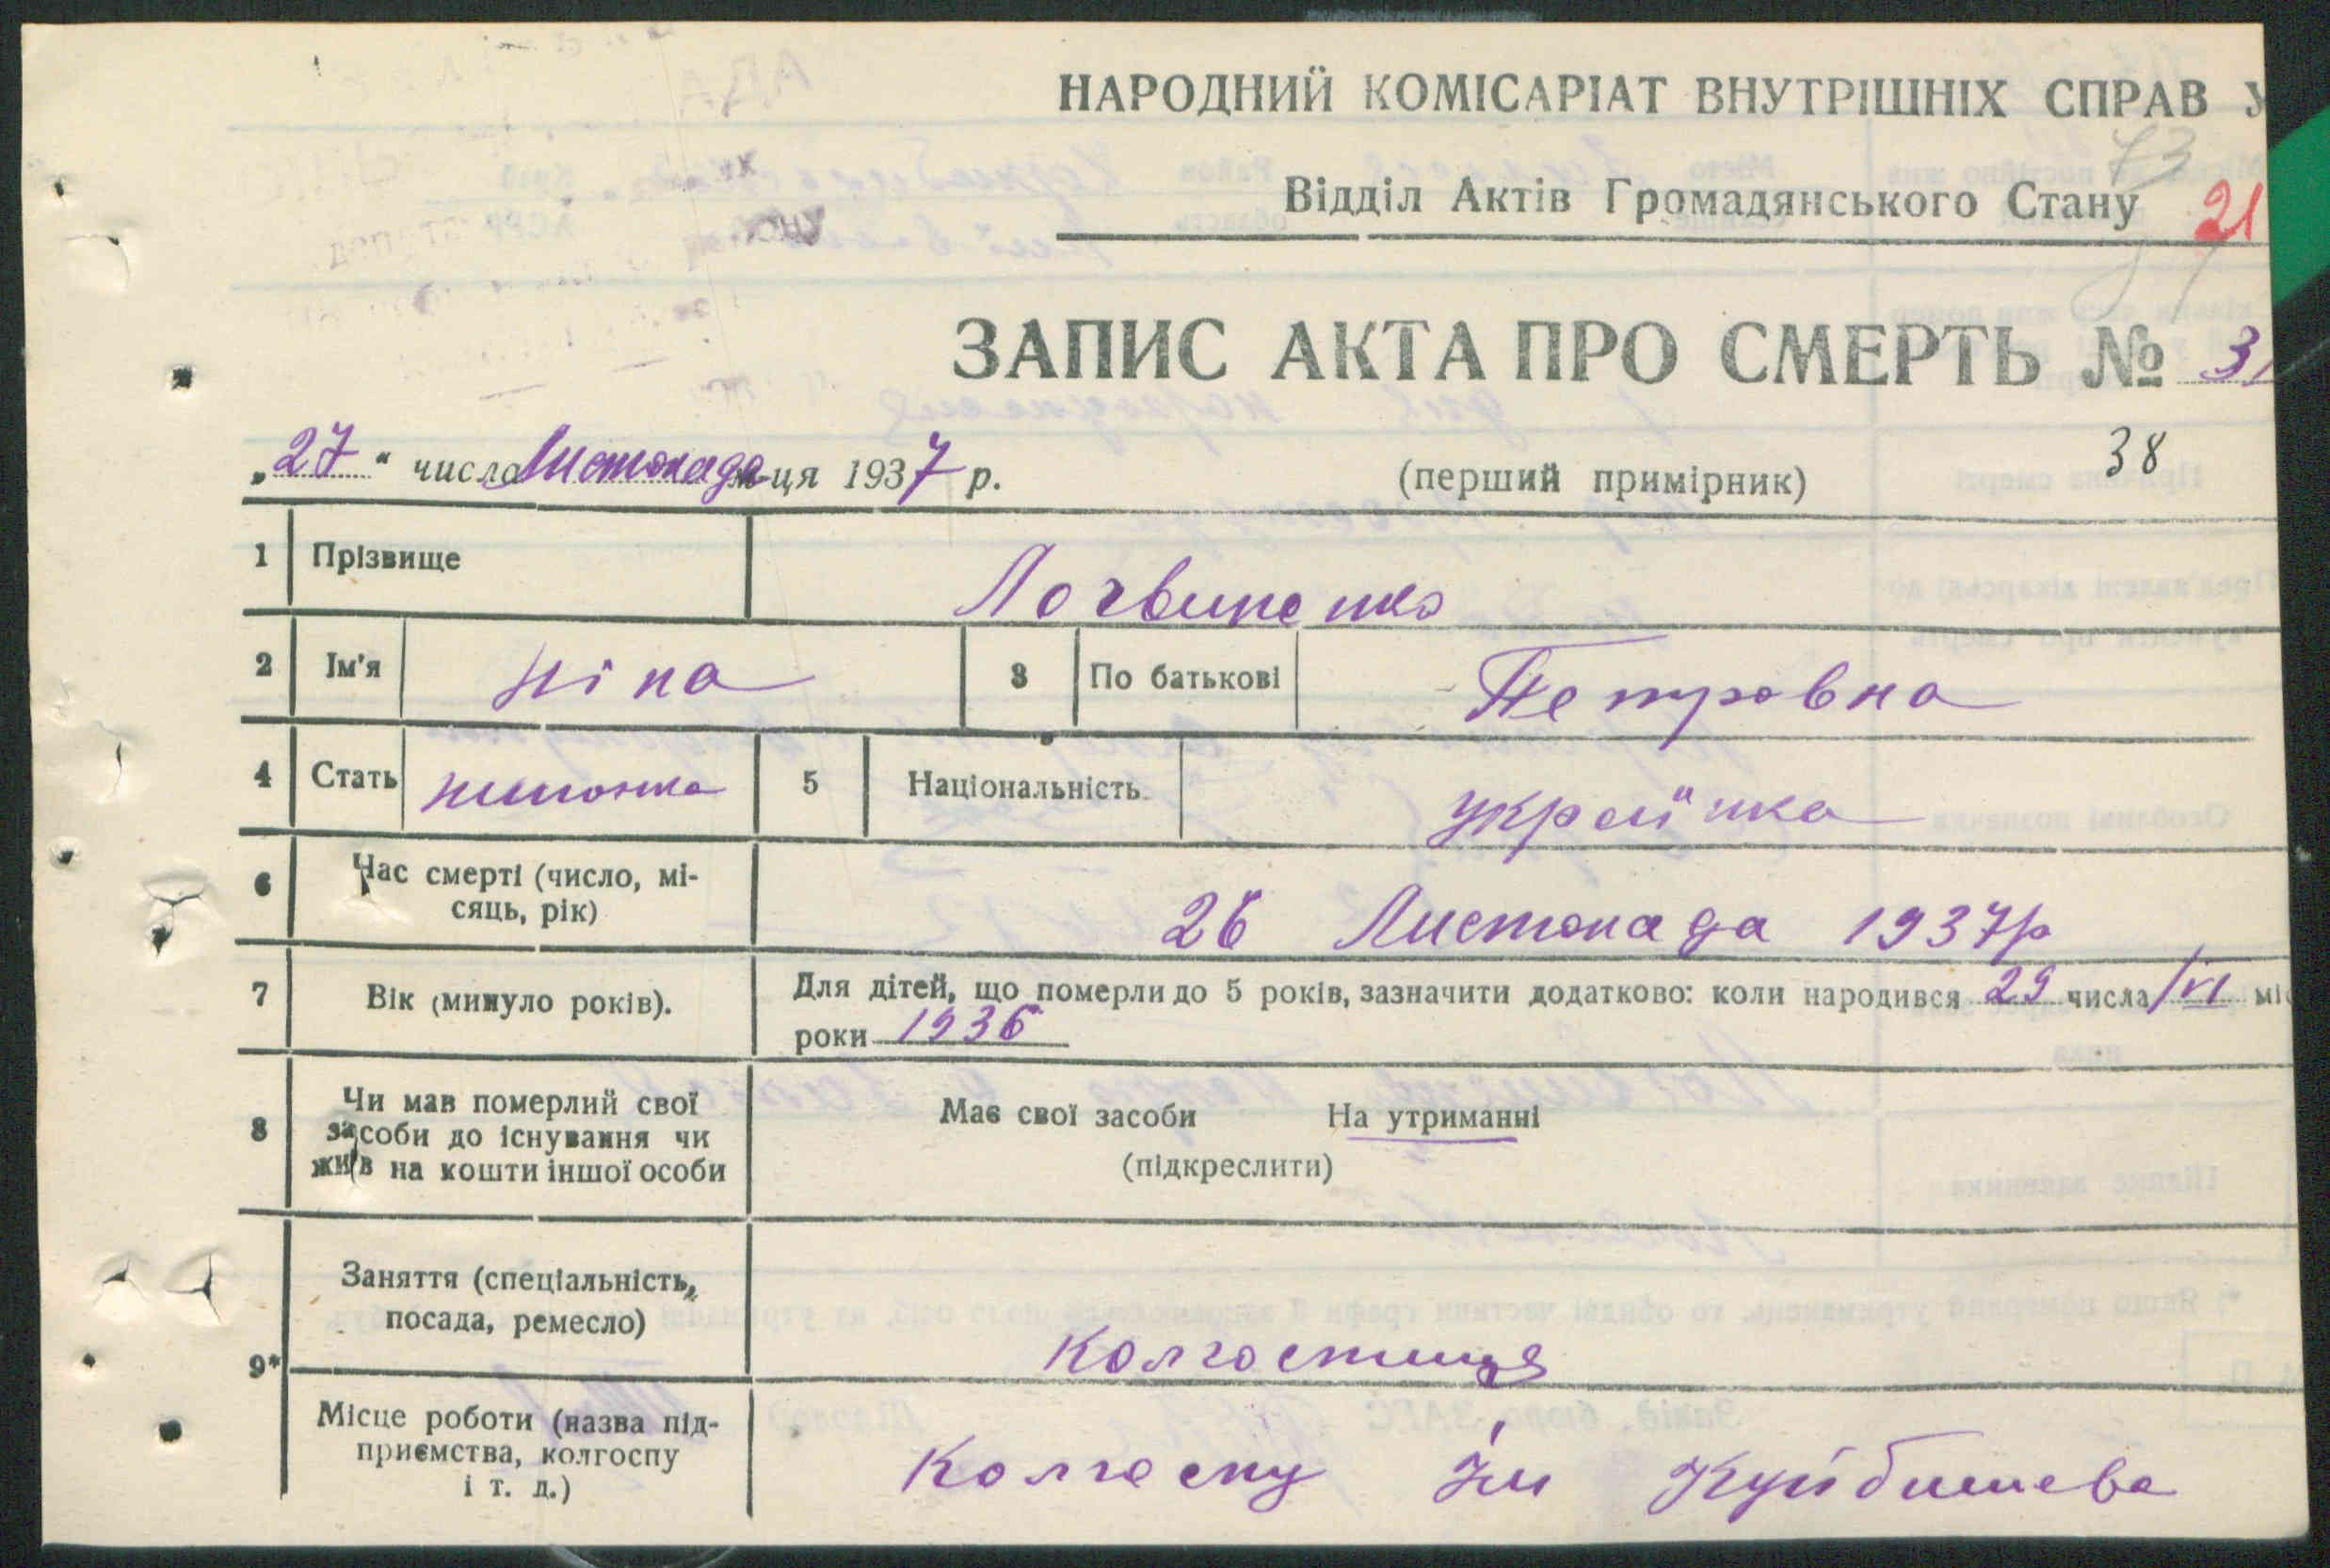 НАРОДНИЙ КОМІСАРІАТ ВНУТРІШНІХ СПРАВ У
73
Відділ Актів Громадянського Стану 21
ЗАПИС АКТА ПРО СМЕРТЬ № 31
„27“ числа Листопада м-ця 1937 р. (перший примірник) 38
1 Прізвище Логвиненко
2 Ім'я Ніна 3 По батькові Петровна
4 Стать жиночка 5 Національність українка
6 Час смерті (число, мі-
сяць, рік) 26 Листопада 1937р
7 Вік (минуло років). Для дітей, що померли до 5 років, зазначити додатково: коли народився 29 числа VI міс
роки 1936
8 Чи мав померлий свої
засоби до існування чи
жив на кошти іншої особи
Має свої засоби На утриманні
(підкреслити)
9* Заняття (спеціальність,
посада, ремесло) колгоспниця
Місце роботи (назва під-
приємства, колгоспу
і т. д.) Колгоспу Ім Куйбишева